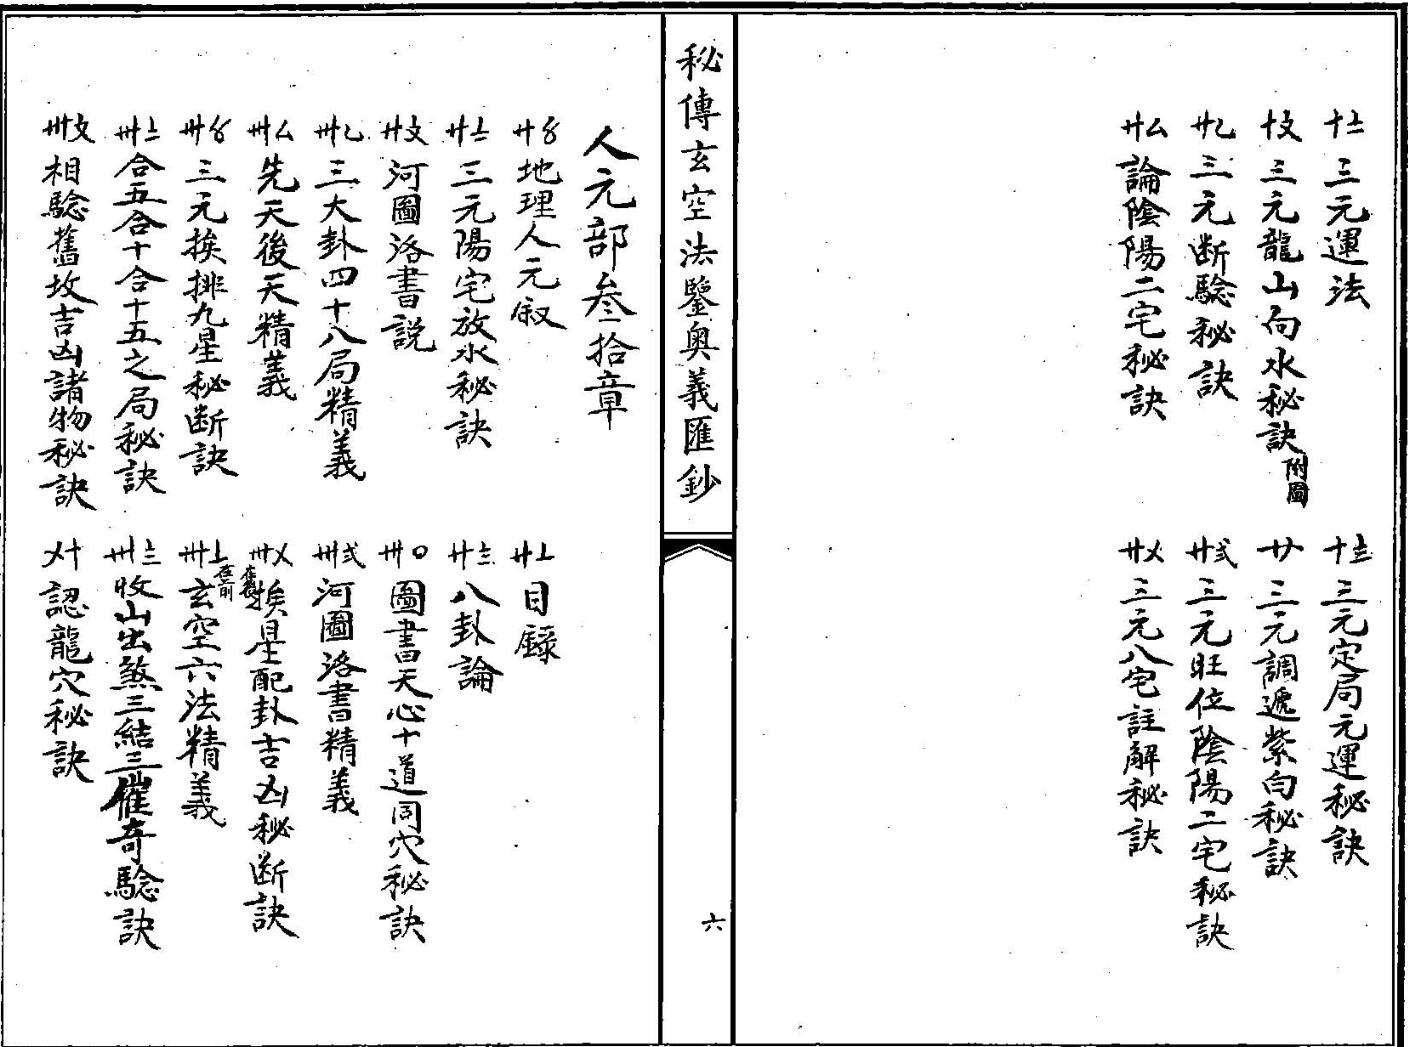 十〧 三元運法
十〨 三元定局元運秘訣
十〩 三元龍山向水秘訣 附圖
廿 三元調遞紫白秘訣
廿乙 三元断驗秘訣
廿弍 三元旺位陰陽二宅秘訣
廿厶 論陰陽二宅秘訣
廿〤 三元八宅註解秘訣
秘傳玄空法鑒奥義匯鈔
六
人元部叁拾章
廿〥 地理人元叙
廿〦 目録
廿〧 三元陽宅放水秘訣
廿〨 八卦論
廿〩 河圖洛書説
卅〇 圖書天心十道同穴秘訣
卅乙 三大卦四十八局精義
卅弍 河圖洛書精義
卅厶 先天後天精義
卅〤 挨星配卦吉凶秘断訣
卅〥 三元挨排九星秘断訣
卅〦 在前 玄空六法精義
卅〧 合五合十合十五之局秘訣
卅〨 收山出煞三結三催奇驗訣
卅〩 相驗舊坟吉凶諸物秘訣
〤十 認龍穴秘訣